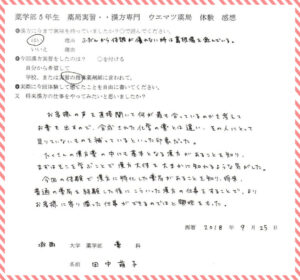 薬学部5年生 薬局実習・・漢方専門 ウエマツ薬局 体験 感想
●漢方に今まで興味を持っていましたか？○で読んでください。
はい 理由 ふだんから体調が優れない時は葛根湯を飲んでいる。
いいえ 理由
●今回漢方薬実習をしたのは？ ○を付ける
自分から希望して
学校、または実習の指導薬剤師に言われて。
●実際に今回体験して感じたことを自由に書いてください。
又 将来漢方の仕事をやってみたいと思いましたか？
お客様の声を直接聞いて何が最も合っているのかを考えて
お薬を出すので、合成された化学の薬とは違い、その人にとって
足りていないものを補っているといった印象だった。
たくさんの漢方薬の中にも基本となる漢方があることを知り、
まずはそこを学ぶことで漢方大体を大まかに知れるような気がした。
今回の体験で漢方に特化した薬局があることを知り、将来、
普通の薬局を経験した後にこういった漢方の仕事をすることで、より
お客様に寄り添った仕事ができるのではと興味をもった。
西暦 2018年 9月25日
大学 薬学部 薬科
名前 田中 萌子